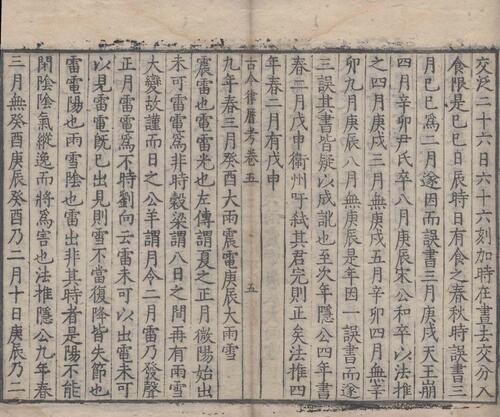 交泛二十六日六十六刻加時在晝去交分入
食限是己巳日辰時日有食之春秋時誤書三
月己巳為二月遂因而誤書三月庚戌天王崩
四月辛卯尹氏卒八月庚辰宋公和卒以法推
之四月庚戌三月無庚戌五月辛卯四月無辛
卯九月庚辰八月無庚辰是年因一誤書而遂
三誤其書皆疑以成訛也至次年隱公四年書
春二月戊申衞州吁弒其君完則正矣法推四
年春二月有戊申
古今律曆考卷五 五
九年春三月癸酉大雨震電庚辰大雨雪
震雷也電雷光也左傳謂夏之正月微陽始出
未可雷電為非時穀梁謂八日之間再有雨雪
大變故謹而日之公羊謂月令二月雷乃發聲
正月雷電為不時劉向云雷未可以出電未可
以見雷電既已出見則雪不當復降皆失節也
雷電陽也雨雪陰也雷出非其時者是陽不能
閉陰陰氣縱逸而將為害也法推隱公九年春
三月無癸酉庚辰癸酉乃二月十日庚辰乃二